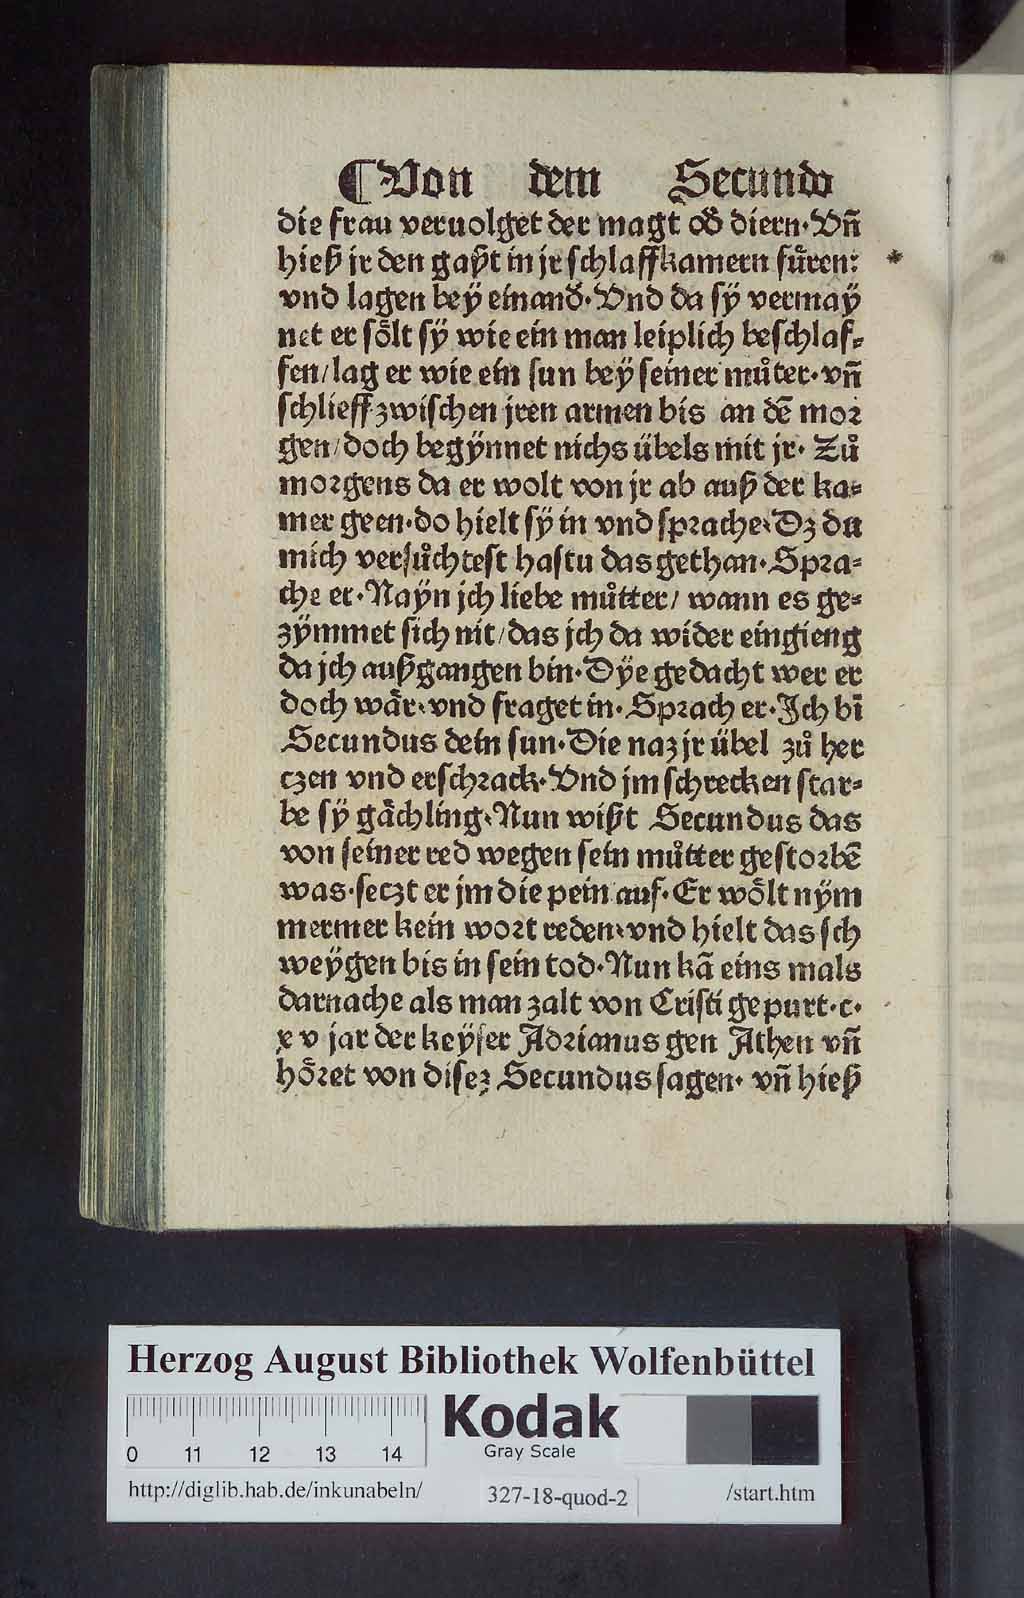 ¶Von dem Secundo
die frau veruolget der magt od̕ diern·Vn̄
hieß jr den gaßt in jr schlaffkamern fu̍ren:
vnd lagen bey̎ einand̕·Vnd da sy̎ vermay̎
net er sőlt sy̎ wie ein man leiplich beschlaf⸗
fen/lag er wie ein sun bey̎ seiner můter·vn̄
schlieff zwischen jren armen bis an dē mor
gen/doch begy̎nnet nichs übels mit jr· Zů
morgens da er wolt von jr ab auß der ka⸗
mer geen·do hielt sy̎ in vnd sprache·Dz du
mich versůchtest hastu das gethan·Spra⸗
che er·Nay̎n jch liebe můtter/ wann es ge⸗
zy̎mmet sich nit/das jch da wider eingieng
da jch außgangen bin·Dy̎e gedacht wer er
doch wa̎r·vnd fraget in·Sprach er·Jch bī
Secundus dein sun·Die naz jr übel zů her
czen vnd erschrack·Vnd jm schrecken star⸗
be sy̎ ga̎chling·Nun wißt Secundus das
von seiner red wegen sein můtter gestorbē
was·seczt er jm die pein auf·Er wőlt ny̎m
mermer kein wort reden·vnd hielt das sch
wey̎gen bis in sein tod·Nun kā eins mals
darnache als man zalt von Cristi gepurt·c·
x v jar der key̎ser Adrianus gen Athen vn̄
hőret von disez Secundus sagen· vn̄ hieß
Herzog August Bibliothek Wolfenbüttel
0 11 12 13 14
Kodak
Gray Scale
http://diglib.hab.de/inkunabeln/ 327-18-quod-2 /start.htm